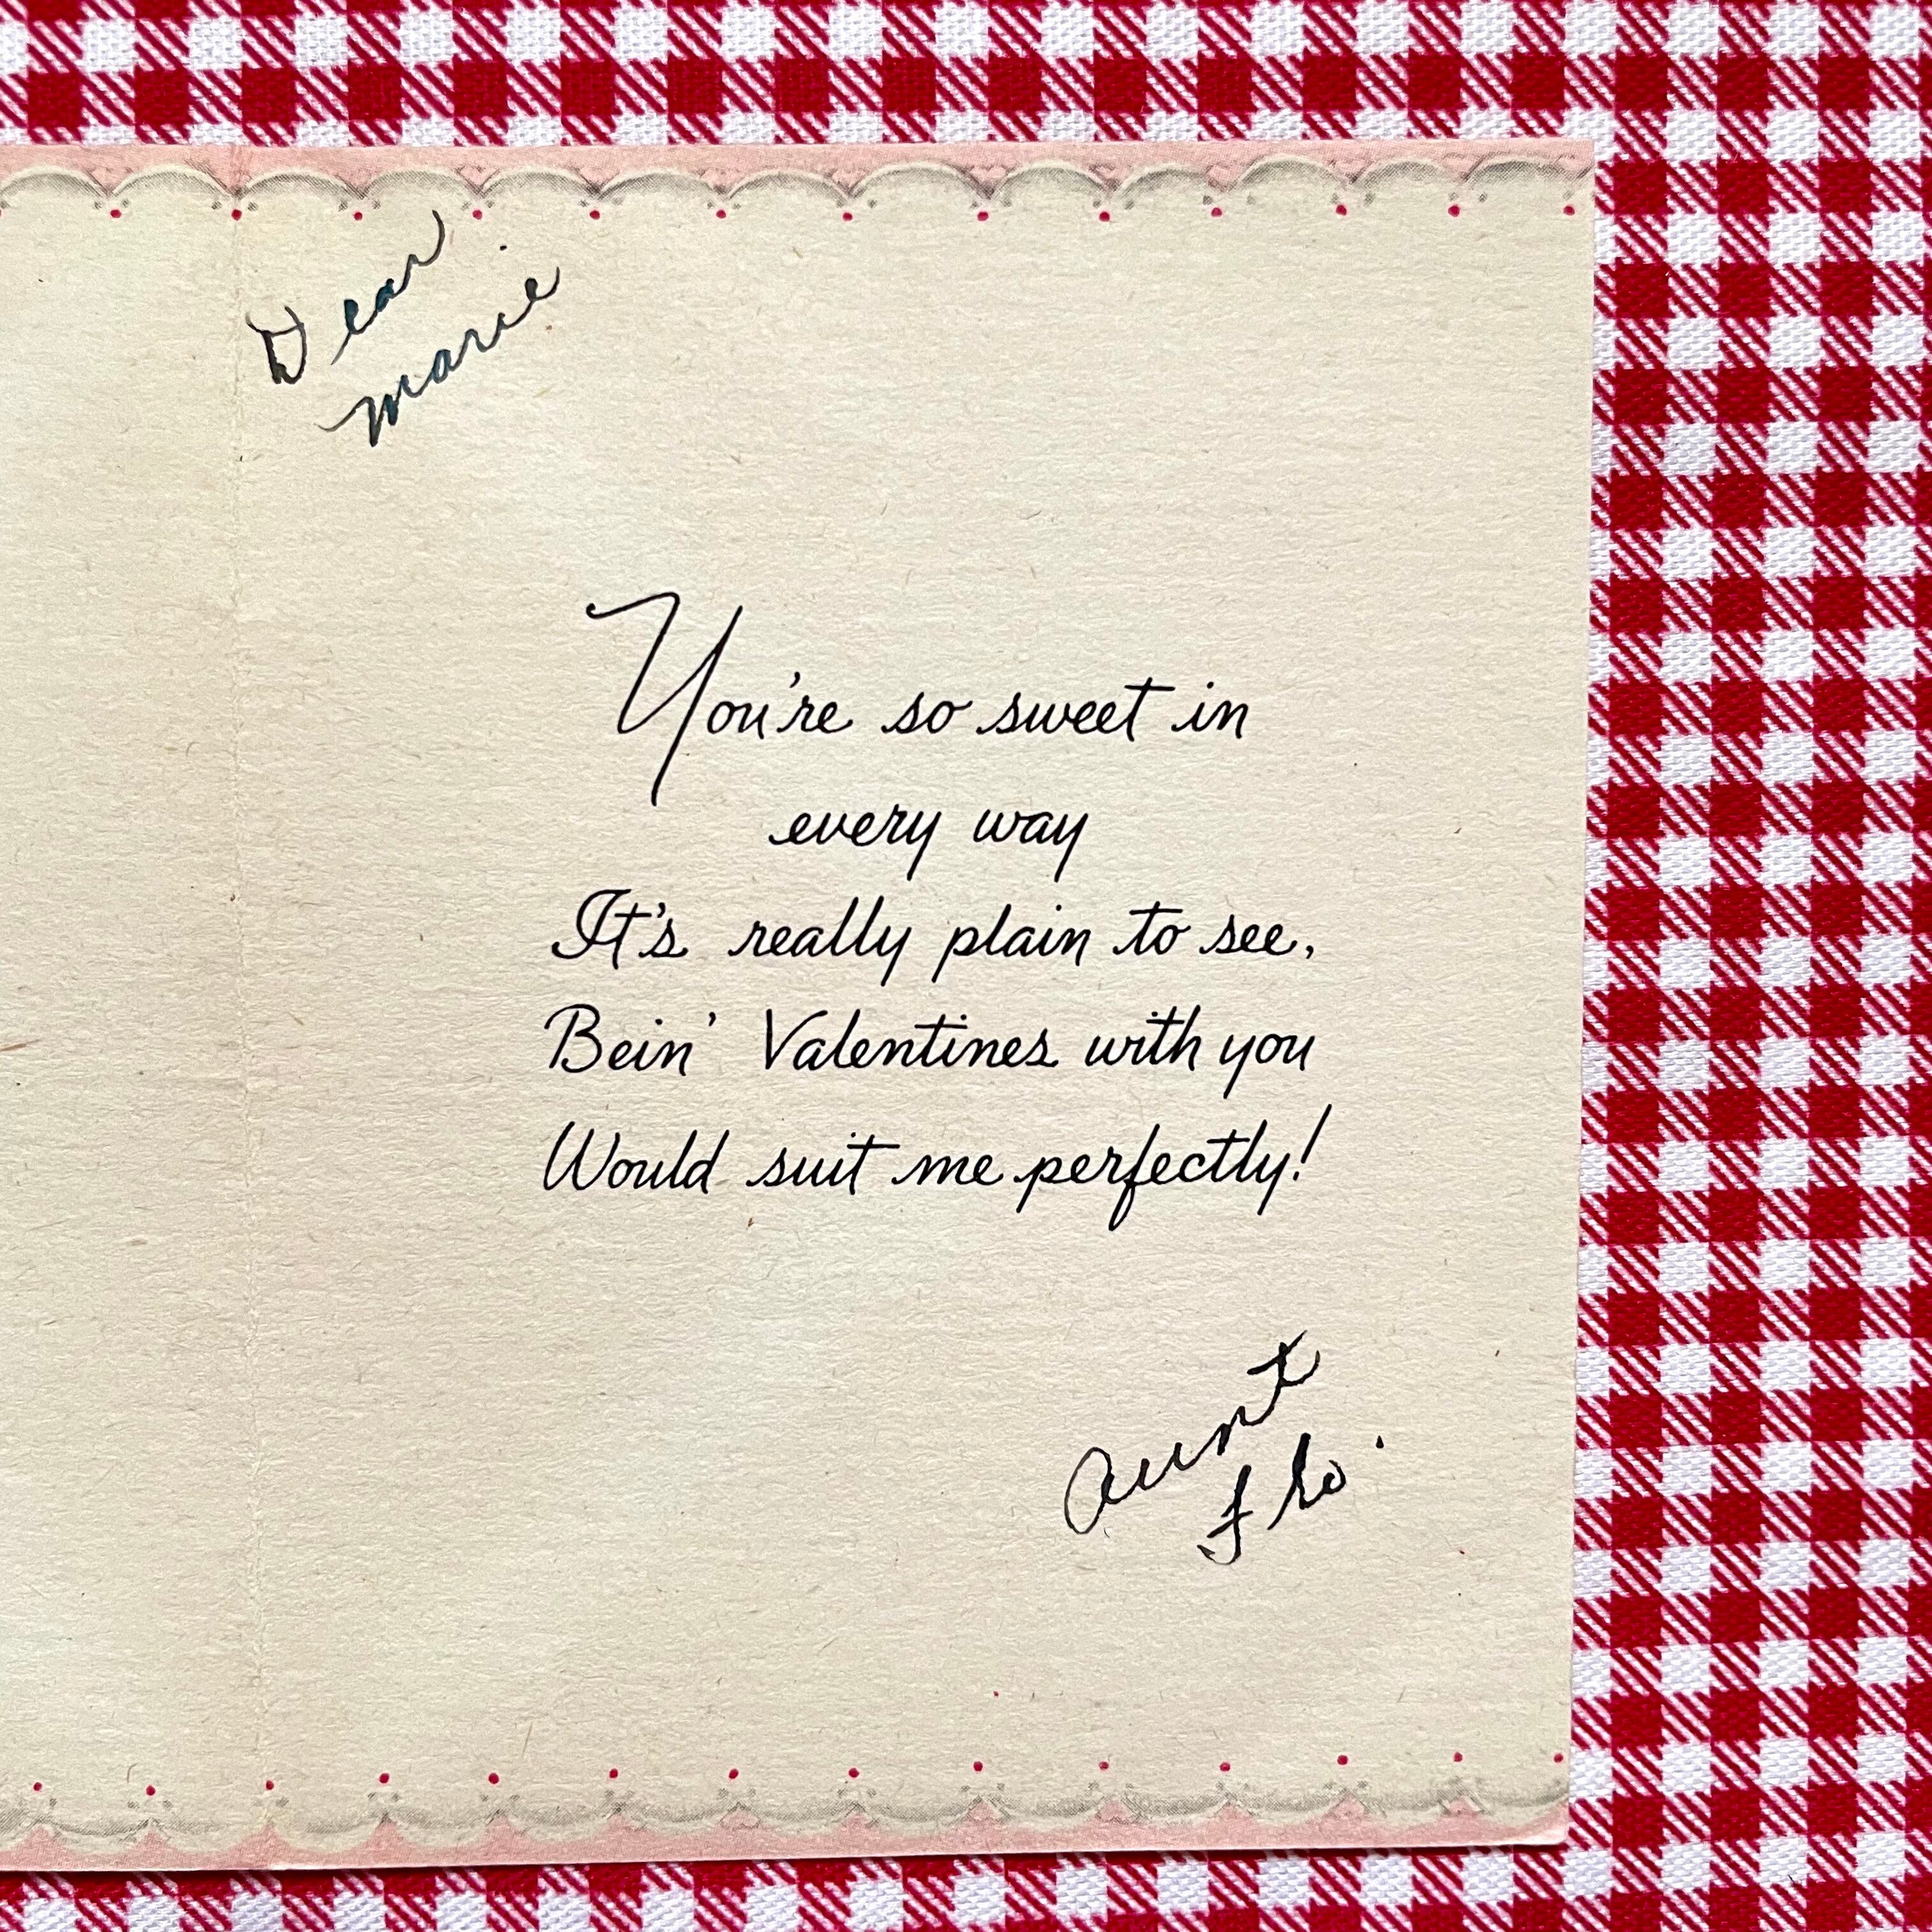 Dear
Marie
You're so sweet in
every way
It's really plain to see,
Bein' Valentines with you
Would suit me perfectly!
Aunt
Flo.